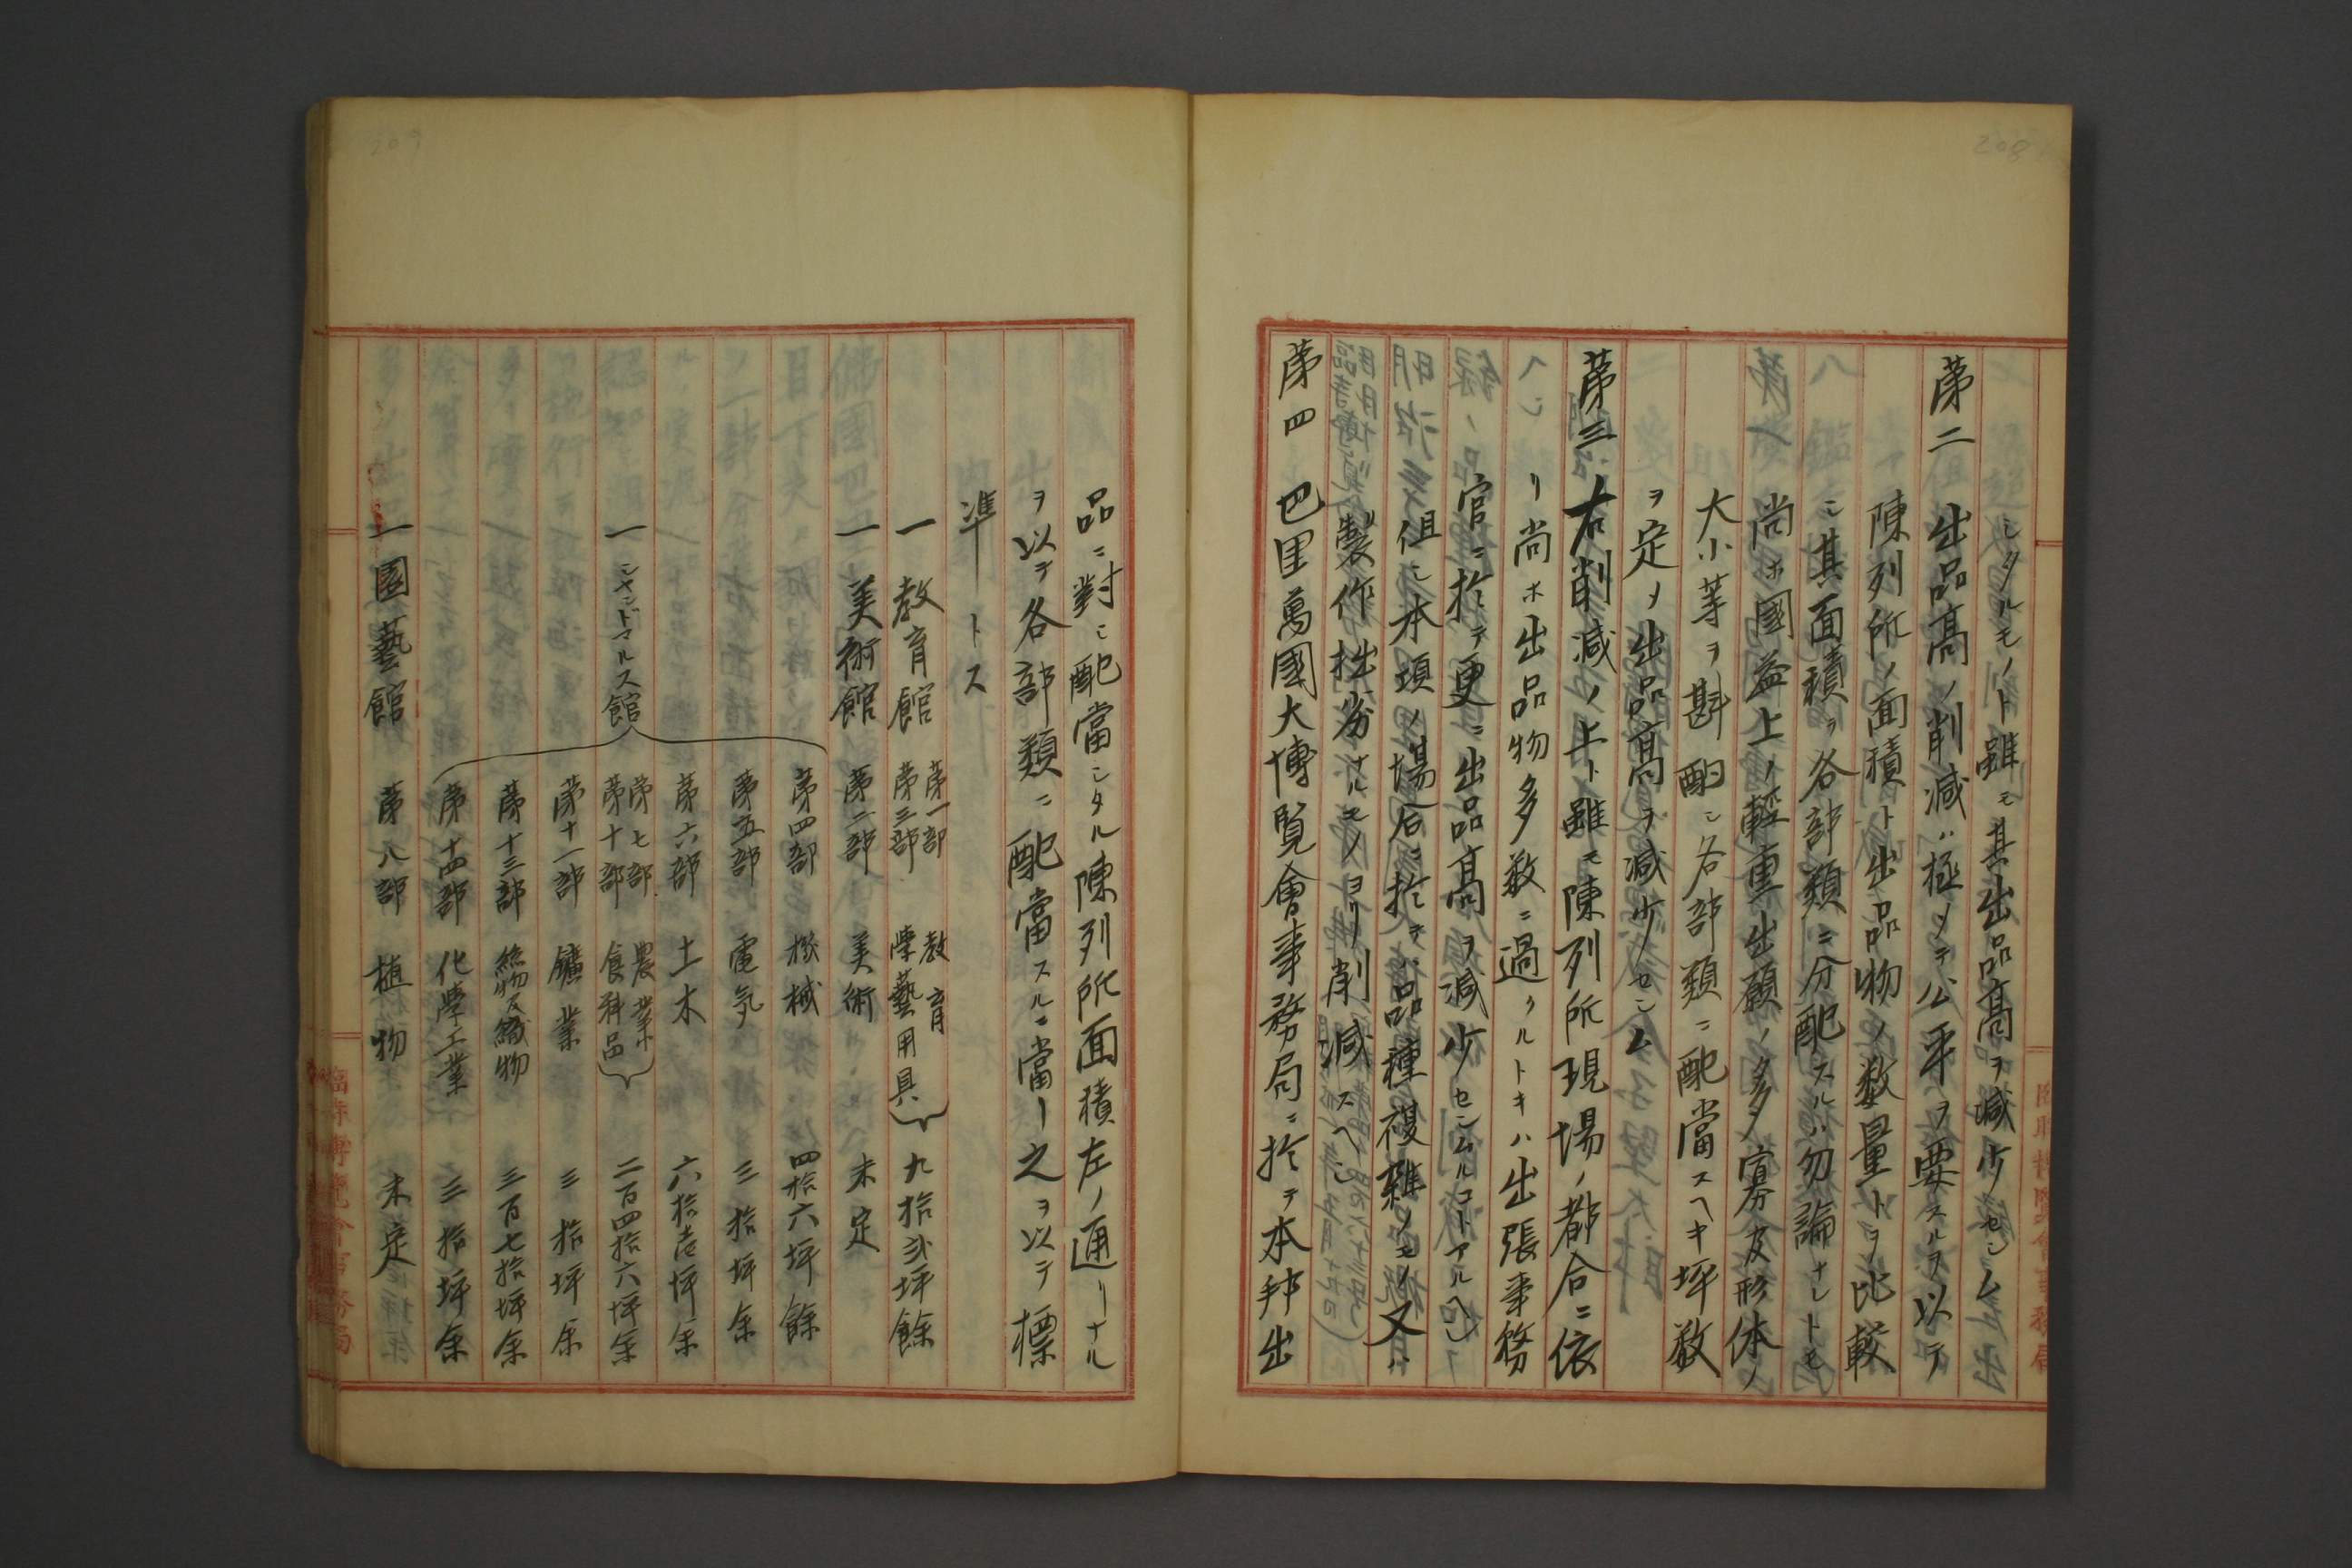 208
シタルモノト雖モ其出品高ヲ減少セシム
第二 出品高ノ削減ハ極メテ公平ヲ要スルヲ以テ
陳列所ノ面積ト出品物ノ数量トヲ比較
シ其面積ヲ各部類ニ分配スルハ勿論ナレトモ
尚ホ國益上ノ輕重出願ノ多寡及形体ノ
大小等ヲ斟酌シ各部類ニ配當スヘキ坪数
ヲ定メ出品高ヲ減少セシム
第三 右削減ノ上ト雖モ陳列所現場ノ都合ニ依
リ尚ホ出品物多数ニ過クルトキハ出張事務
官ニ於テ更ニ出品高ヲ減少センムルコトアルヘシ
但シ本項ノ場合ニ於テハ品種複雑ノモノ又ハ
製作拙劣ナルモノヨリ削減スヘシ
第四 巴里萬國大博覧會事務局ニ於テ本邦出
209
品ニ對シ配當シタル陳列所面積左ノ通リナル
ヲ以テ各部類ニ配當スルニ當リ之ヲ以テ標
準トス
一 教育館 第一部 教育 第三部 學藝用具 九拾弐坪餘
一 美術館 第二部 美術 未定
第四部 機械 四拾六坪餘
第五部 電気 三拾坪余
第六部 土木 六拾壱坪余
一 シャンドマルス館 第七部 農業 第十部 食料品 二百四拾六坪余
第十一部 鑛業 三拾坪余
第十三部 絲物及織物 三百七拾坪余
第十四部 化學工業 三拾坪余
一 園藝館 第八部 植物 未定
臨時博覧會事務局